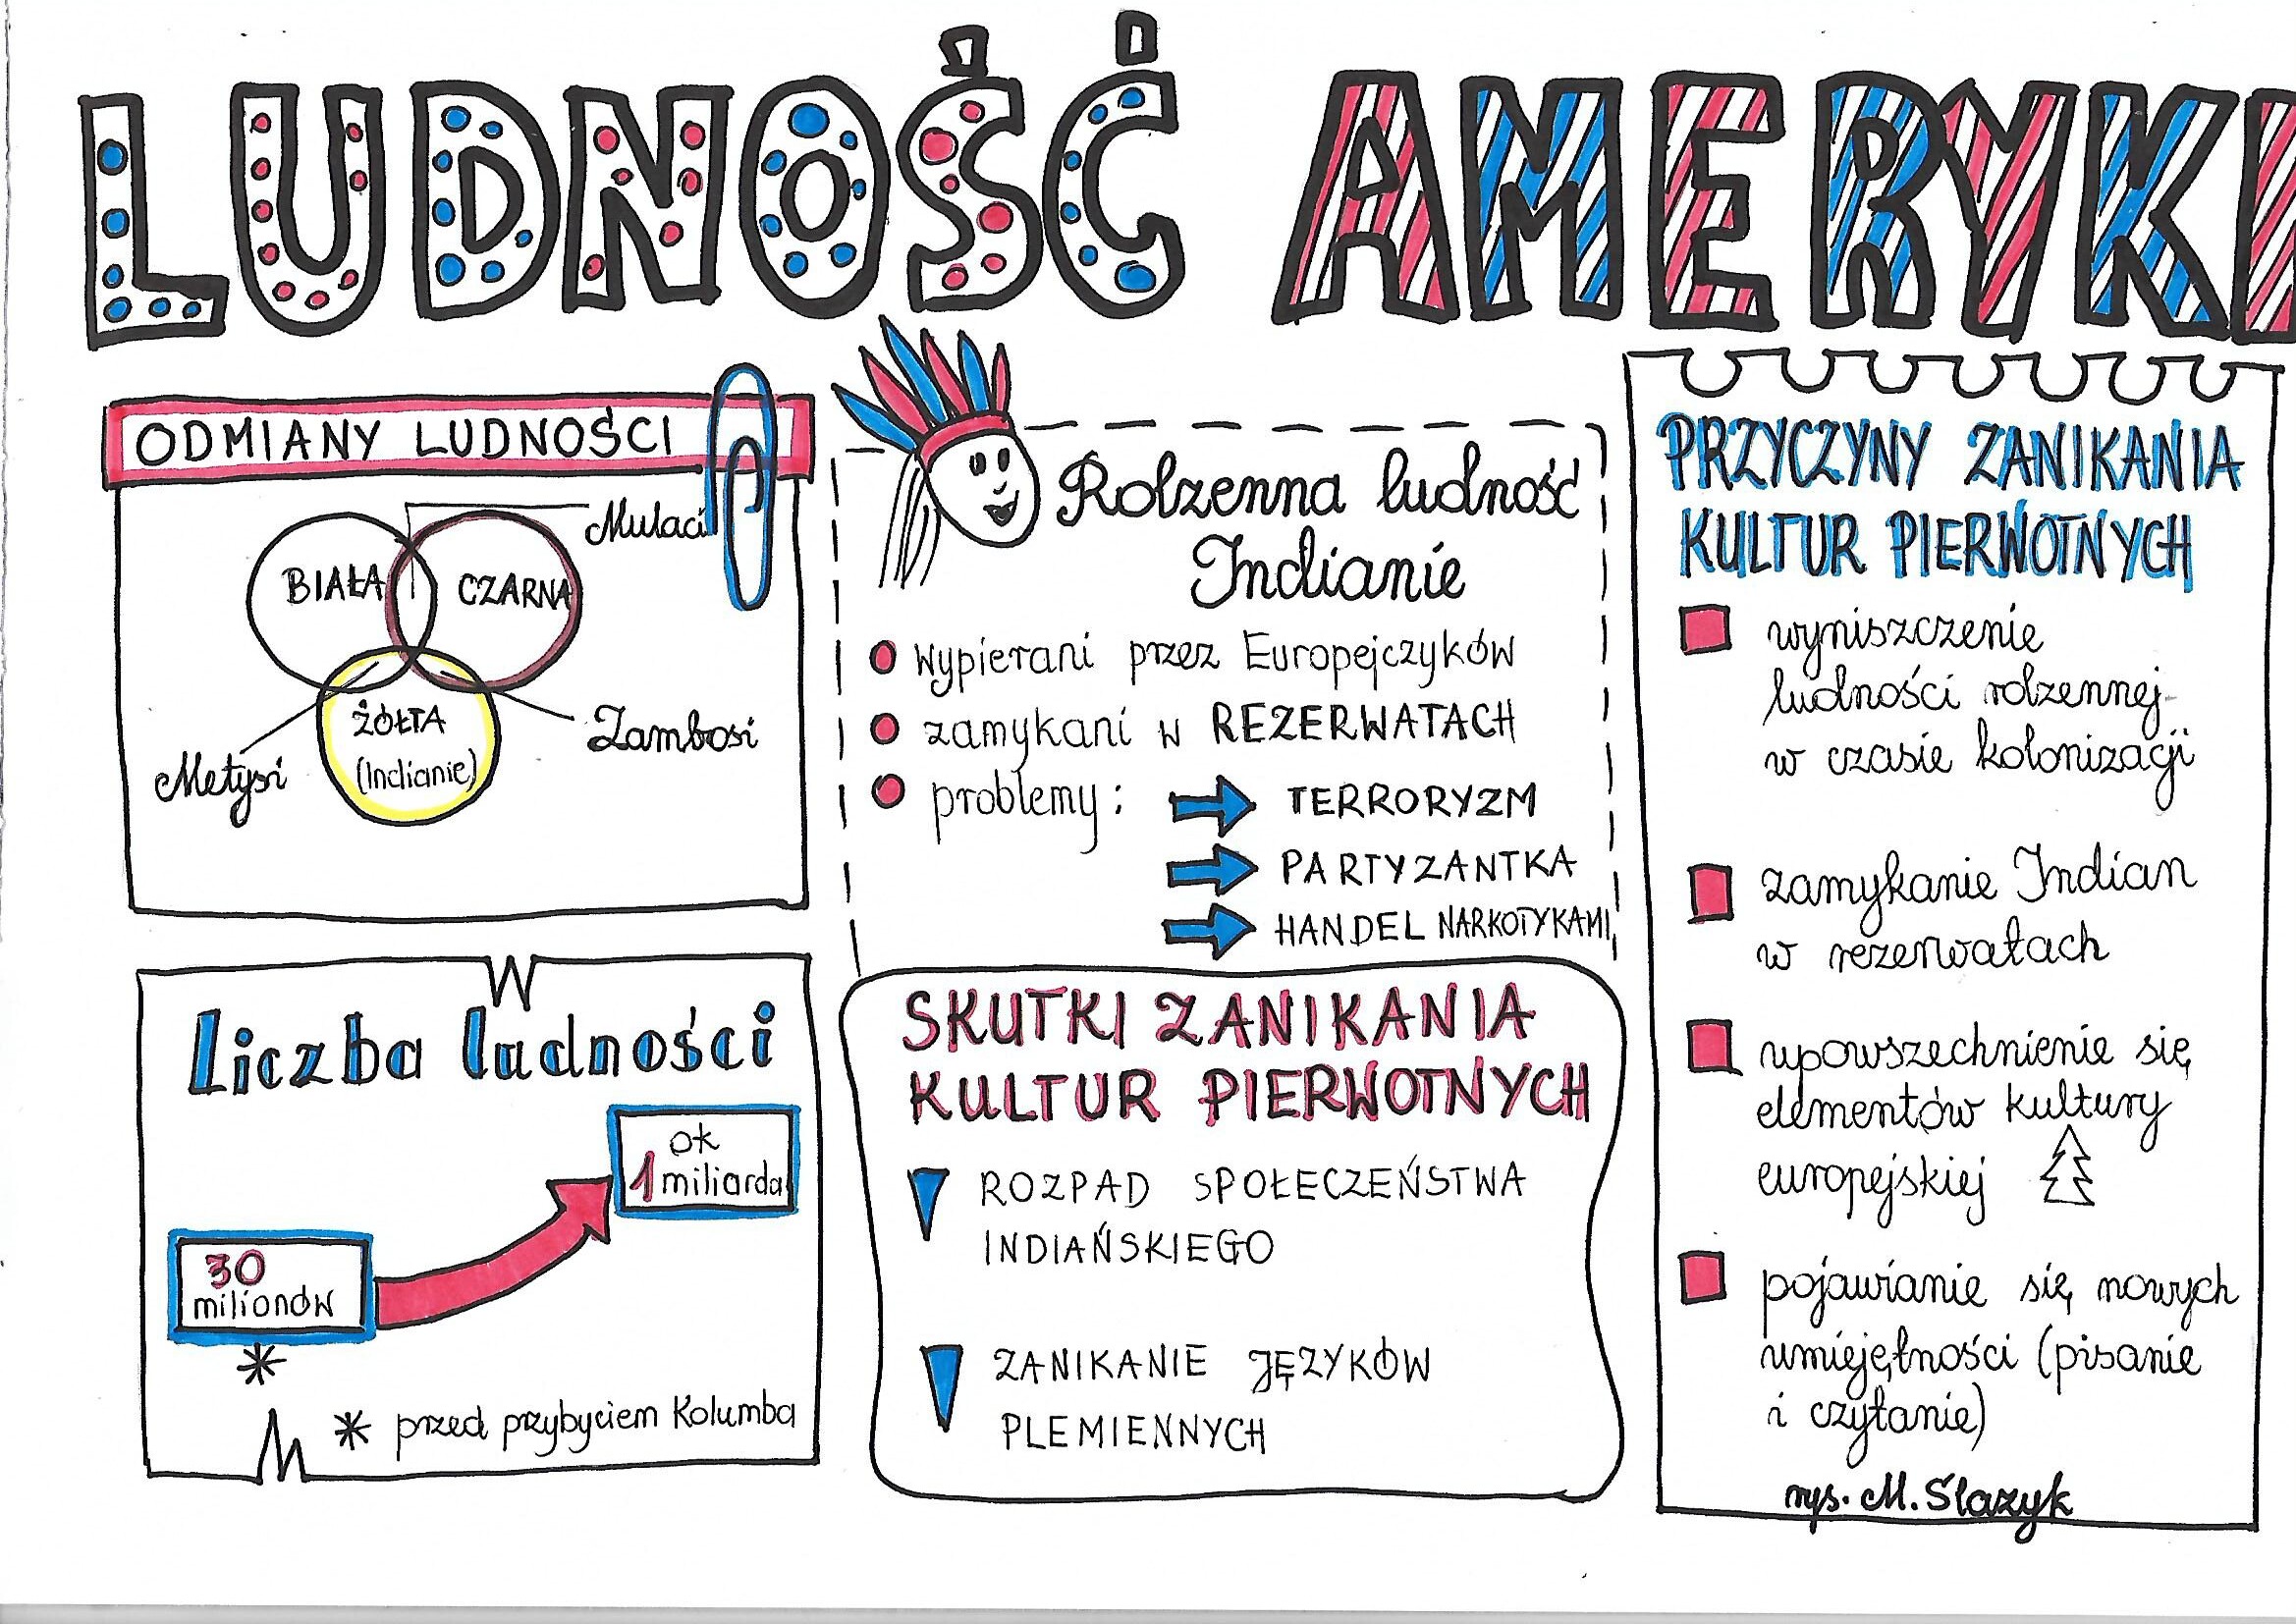 LUDNOŚĆ AMERYKI
ODMIANY LUDNOŚCI
Mulaci
BIAŁA
CZARNA
ŻÓŁTA
(Indianie)
Metysi
Zambosi
Liczba ludności
ok
1 miliarda
30
milionów
*
* przed przybyciem Kolumba
Rdzenna ludność
Indianie
wypierani przez Europejczyków
zamykani w REZERWATACH
problemy:
TERRORYZM
PARTYZANTKA
HANDEL NARKOTYKAMI
SKUTKI ZANIKANIA
KULTUR PIERWOTNYCH
ROZPAD SPOŁECZEŃSTWA
INDIAŃSKIEGO
ZANIKANIE JĘZYKÓW
PLEMIENNYCH
PRZYCZYNY ZANIKANIA
KULTUR PIERWOTNYCH
wyniszczenie
ludności rdzennej
w czasie kolonizacji
zamykanie Indian
w rezerwatach
upowszechnienie się
elementów kultury
europejskiej
pojawianie się nowych
umiejętności (pisanie
i czytanie)
rys. M. Ślazyk